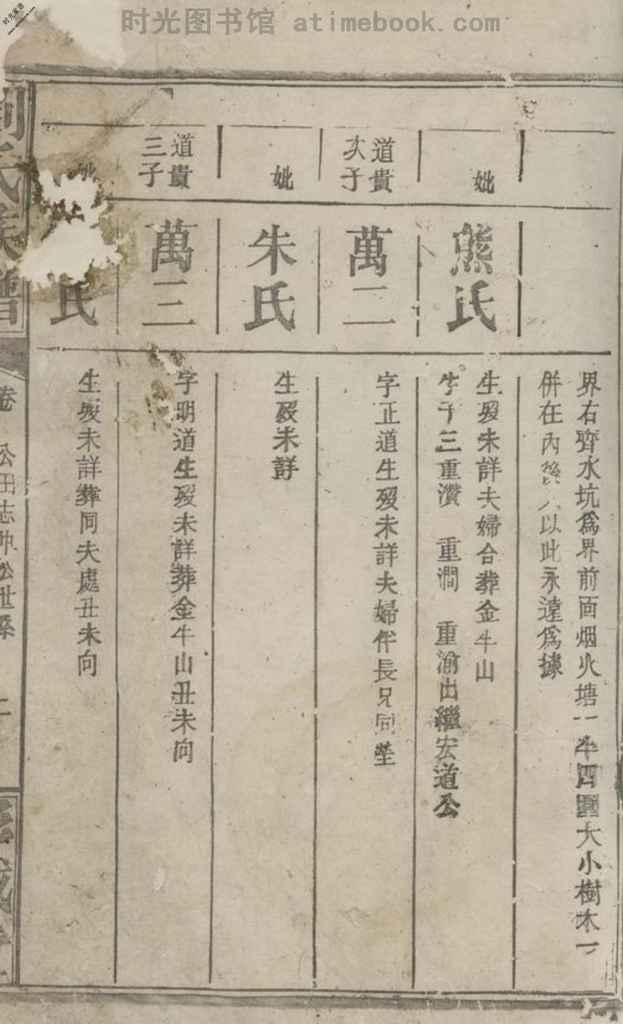 时光图书馆 atimebook.com
界右齊水坑爲界前面烟火塘一半四圍大小樹木一
併在內後人以此永遠爲據
妣
熊氏
生歿未詳夫婦合葬金牛山
生子三重瓚 重澗 重渝出繼宏道公
道貴
次子
萬二
字正道生歿未詳夫婦伴長兄同塋
妣
朱氏
生歿未詳
道貴
三子
萬三
字明道生歿未詳葬金牛山丑未向
妣
氏
生歿未詳葬同夫處丑未向
劉氏族譜
卷 公田志